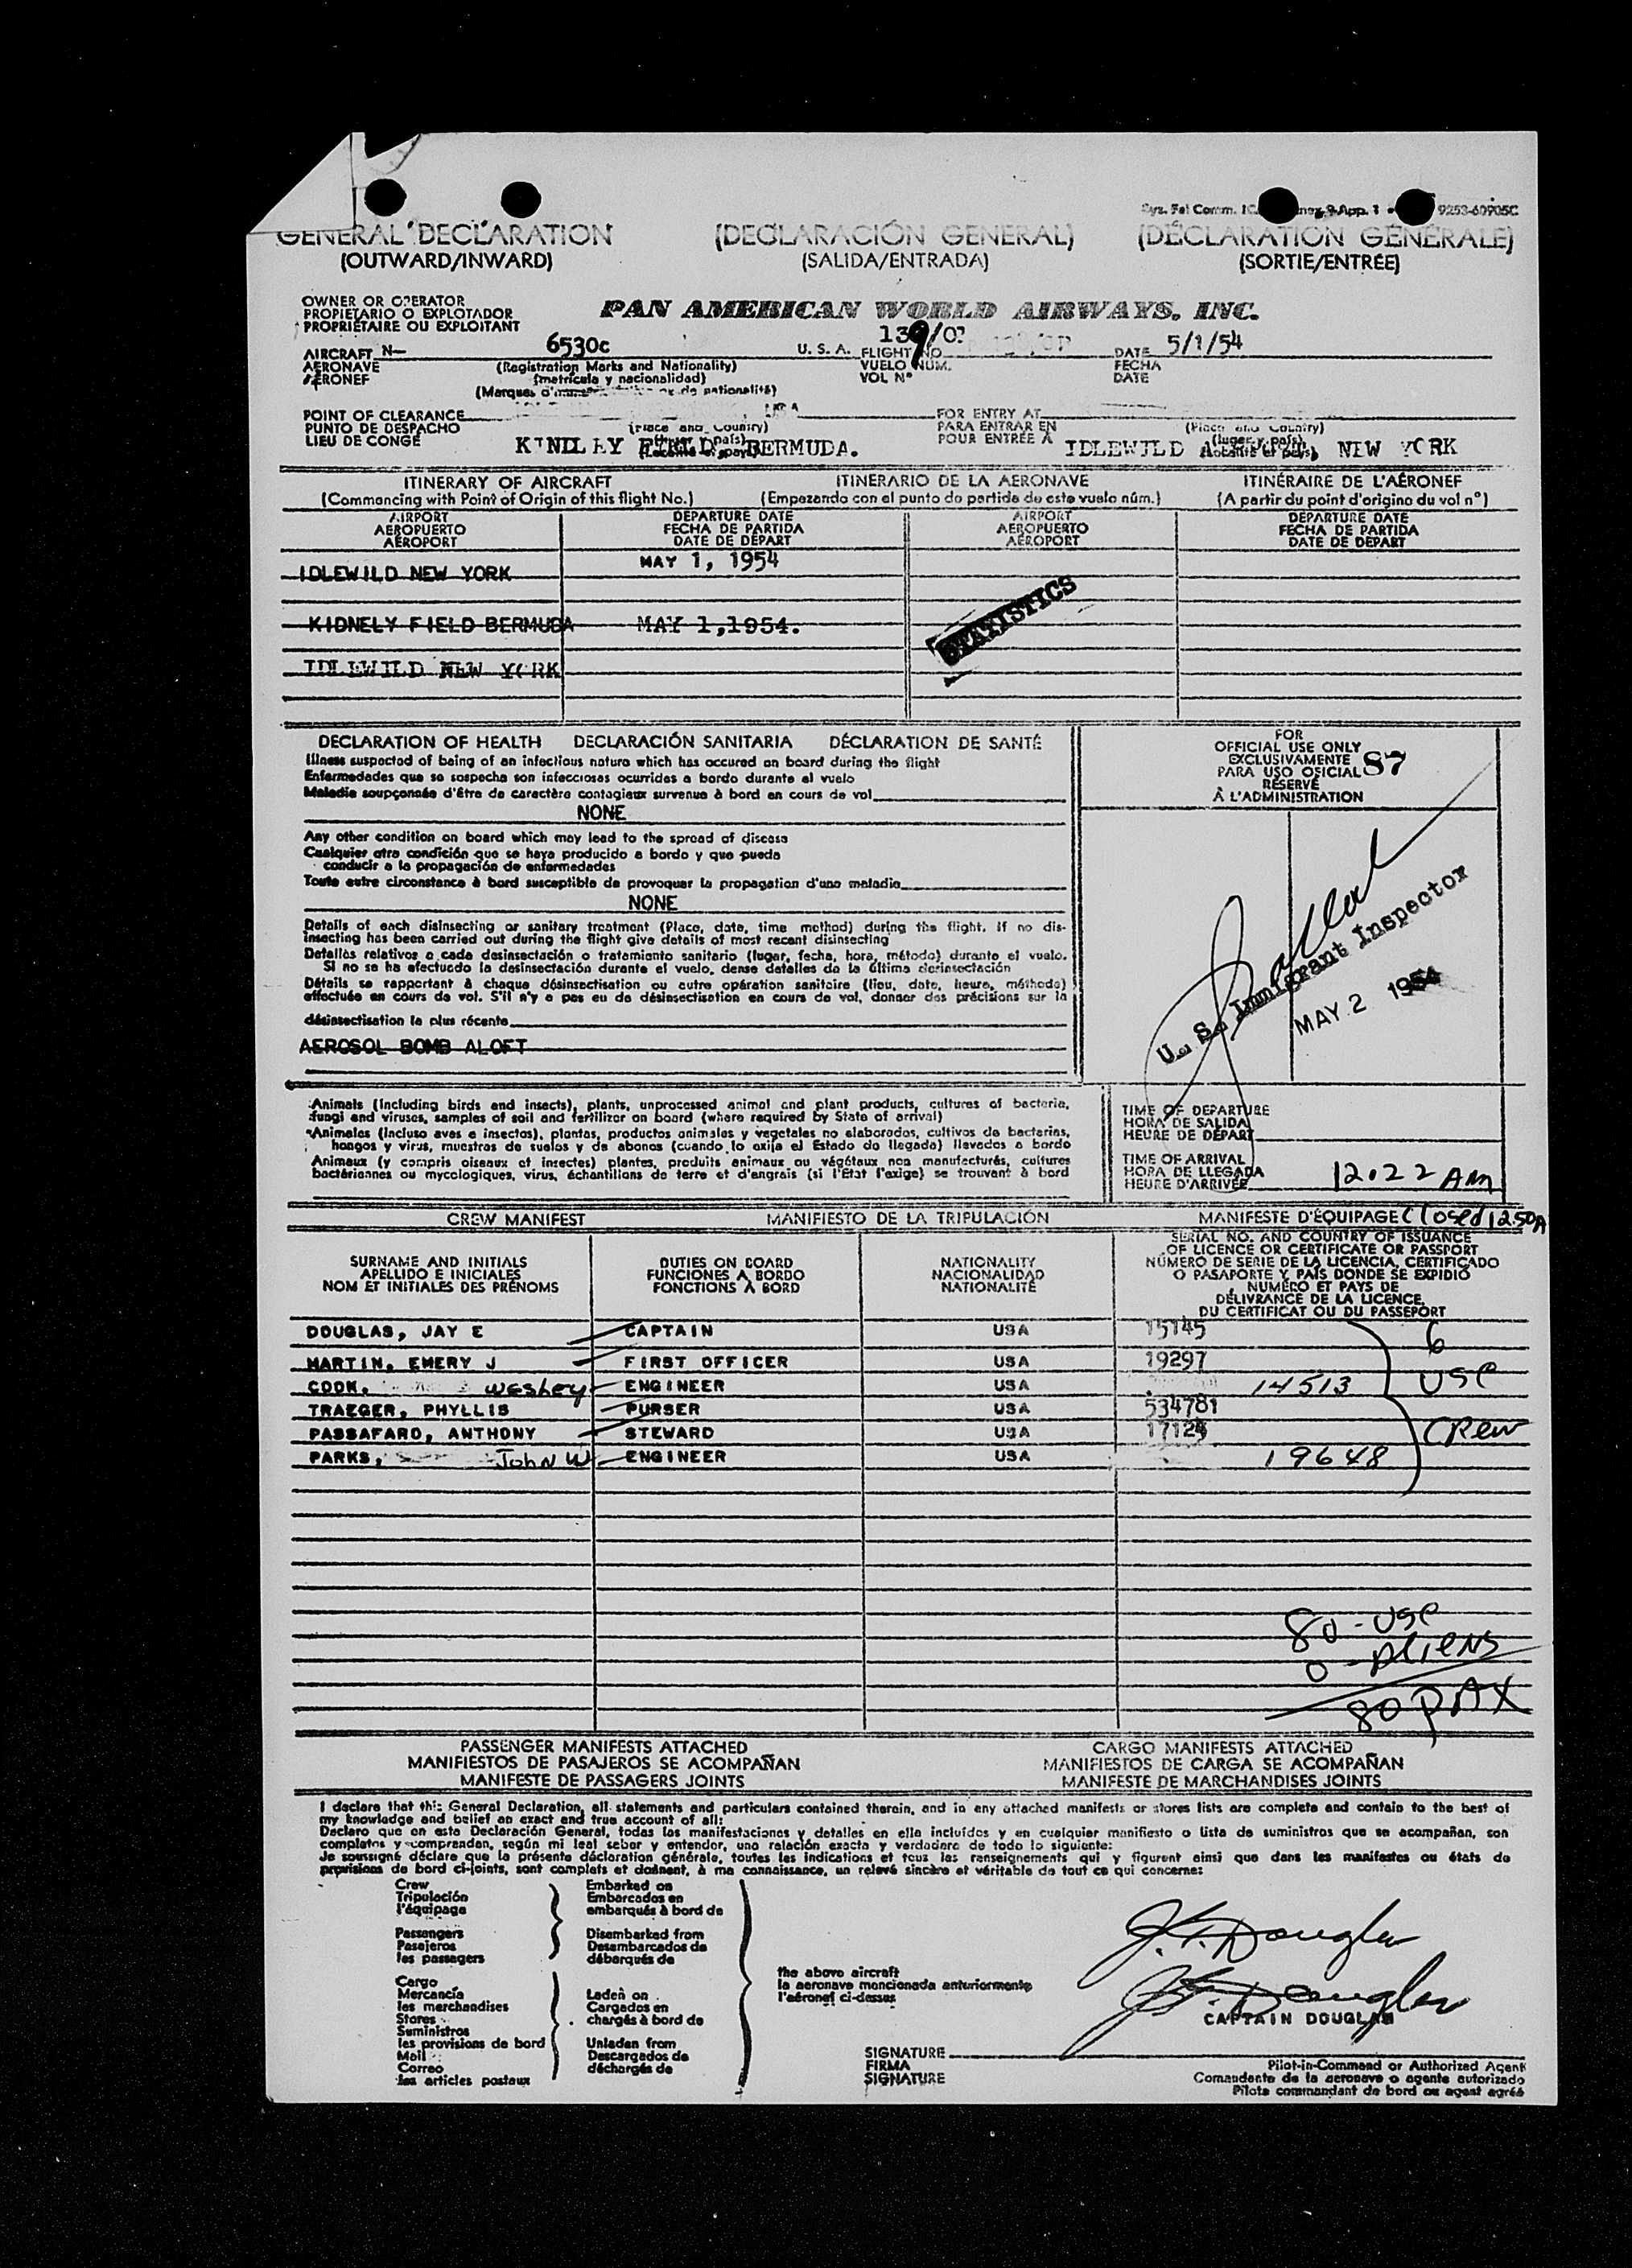 Sys. Fal Comm. 9-App. 1 9253-60905C
GENERAL DECLARATION (DECLARACIÓN GENERAL) (DÉCLARATION GÉNÉRALE)
(OUTWARD/INWARD) (SALIDA/ENTRADA) (SORTIE/ENTRÉE)
OWNER OR OPERATOR
PROPIETARIO O EXPLOTADOR
PROPRIÉTAIRE OU EXPLOITANT
PAN AMERICAN WORLD AIRWAYS, INC.
139/01
AIRCRAFT N— 6530c U. S. A. FLIGHT NO. DATE 5/1/54
AERONAVE (Registration Marks and Nationality) VUELO NÚM. FECHA
AÉRONEF (matrícula y nacionalidad) VOL Nº DATE
(Marques d'immatriculation ex de nationalité)
POINT OF CLEARANCE USA FOR ENTRY AT
PUNTO DE DESPACHO (Place and Country) PARA ENTRAR EN (Place and Country)
LIEU DE CONGÉ KINDLEY FIELD BERMUDA. POUR ENTRÉE À IDLEWILD NEW YORK
ITINERARY OF AIRCRAFT ITINERARIO DE LA AERONAVE ITINÉRAIRE DE L'AÉRONEF
(Commencing with Point of Origin of this flight No.) (Empezando con el punto de partida de este vuelo núm.) (A partir du point d'origine du vol nº)
AIRPORT DEPARTURE DATE AIRPORT DEPARTURE DATE
AEROPUERTO FECHA DE PARTIDA AEROPUERTO FECHA DE PARTIDA
AÉROPORT DATE DE DÉPART AÉROPORT DATE DE DÉPART
IDLEWILD NEW YORK MAY 1, 1954
STATISTICS
KIDNELY FIELD BERMUDA MAY 1,1954.
IDLEWILD NEW YORK
DECLARATION OF HEALTH DECLARACIÓN SANITARIA DÉCLARATION DE SANTÉ
Illness suspected of being of an infectious nature which has occured on board during the flight
Enfermedades que se sospecha son infecciosas ocurridas a bordo durante el vuelo
Maladie soupçonnée d'être de caractère contagieux survenue à bord en cours de vol
NONE
Any other condition on board which may lead to the spread of disease
Cualquier otra condición que se haya producido a bordo y que pueda
conducir a la propagación de enfermedades
Toute autre circonstance à bord susceptible de provoquer la propagation d'une maladie
NONE
Details of each disinsecting or sanitary treatment (Place, date, time method) during the flight. If no dis-
insecting has been carried out during the flight give details of most recent disinsecting
Detalles relativos a cada desinsectación o tratamiento sanitario (lugar, fecha, hora, método) durante el vuelo.
Si no se ha efectuado la desinsectación durante el vuelo, dense detalles de la última desinsectación
Détails se rapportant à chaque désinsectisation ou autre opération sanitaire (lieu, date, heure, méthode)
effectuée en cours de vol. S'il n'y a pas eu de désinsectisation en cours de vol, donner des précisions sur la
désinsectisation la plus récente
AEROSOL BOMB ALOFT
FOR
OFFICIAL USE ONLY
EXCLUSIVAMENTE
PARA USO OSICIAL 87
RÉSERVÉ
À L'ADMINISTRATION
U. S. Immigrant Inspector
MAY 2 1954
Animals (including birds and insects), plants, unprocessed animal and plant products, cultures of bacteria,
fungi and viruses, samples of soil and fertilizer on board (where required by State of arrival)
Animales (incluso aves e insectos), plantas, productos animales y vegetales no elaborados, cultivos de bacterias,
hongos y virus, muestras de suelos y de abonos (cuando lo exija el Estado de llegada) llevados a bordo
Animaux (y compris oiseaux et insectes) plantes, produits animaux ou végétaux non manufacturés, cultures
bactériennes ou mycologiques, virus, échantillons de terre et d'engrais (si l'État l'exige) se trouvant à bord
TIME OF DEPARTURE
HORA DE SALIDA
HEURE DE DÉPART
TIME OF ARRIVAL
HORA DE LLEGADA
HEURE D'ARRIVÉE 12.22 AM
CREW MANIFEST MANIFIESTO DE LA TRIPULACIÓN MANIFESTE D'ÉQUIPAGE Closed 1250A
SURNAME AND INITIALS
APELLIDO E INICIALES
NOM ET INITIALES DES PRÉNOMS
DUTIES ON BOARD
FUNCIONES A BORDO
FONCTIONS À BORD
NATIONALITY
NACIONALIDAD
NATIONALITÉ
SERIAL NO. AND COUNTRY OF ISSUANCE
OF LICENCE OR CERTIFICATE OR PASSPORT
NÚMERO DE SERIE DE LA LICENCIA, CERTIFICADO
O PASAPORTE Y PAÍS DONDE SE EXPIDIÓ
NUMÉRO ET PAYS DE
DÉLIVRANCE DE LA LICENCE,
DU CERTIFICAT OU DU PASSEPORT
DOUGLAS, JAY E CAPTAIN USA 15145 6
MARTIN, EMERY J FIRST OFFICER USA 19297
COOK, Weshey ENGINEER USA 14513 USC
TRAEGER, PHYLLIS PURSER USA 534781
PASSAFARO, ANTHONY STEWARD USA 17124 CRew
PARKS, JohN W ENGINEER USA 19648
80 - USC
0 - ALieNS
80 PAX
PASSENGER MANIFESTS ATTACHED CARGO MANIFESTS ATTACHED
MANIFIESTOS DE PASAJEROS SE ACOMPAÑAN MANIFIESTOS DE CARGA SE ACOMPAÑAN
MANIFESTE DE PASSAGERS JOINTS MANIFESTE DE MARCHANDISES JOINTS
I declare that this General Declaration, all statements and particulars contained therein, and in any attached manifests or stores lists are complete and contain to the best of
my knowledge and belief an exact and true account of all:
Declaro que en esta Declaración General, todas las manifestaciones y detalles en ella incluídos y en cualquier manifiesto o lista de suministros que se acompañan, son
completos y comprendan, según mi leal saber y entender, una relación exacta y verdadera de todo lo siguiente:
Je soussigné déclare que la présente déclaration générale, toutes les indications et tous les renseignements qui y figurent ainsi que dans les manifestes ou états de
provisions de bord ci-joints, sont complets et donnent, à ma connaissance, un relevé sincère et véritable de tout ce qui concerne:
Crew
Tripulación
l'équipage
Passengers
Pasajeros
les passagers
Cargo
Mercancía
les marchandises
Stores
Suministros
les provisions de bord
Mail
Correo
les articles postaux
Embarked on
Embarcados en
embarqués à bord de
Disembarked from
Desembarcados de
débarqués de
Laden on
Cargados en
chargés à bord de
Unladen from
Descargados de
déchargés de
the above aircraft
la aeronave mencionada anteriormente
l'aéronef ci-dessus
J. E. Douglas
J. E. Douglas
CAPTAIN DOUGLAS
SIGNATURE
FIRMA
SIGNATURE
Pilot-in-Command or Authorized Agent
Comandante de la aeronave o agente autorizado
Pilote commandant de bord ou agent agréé